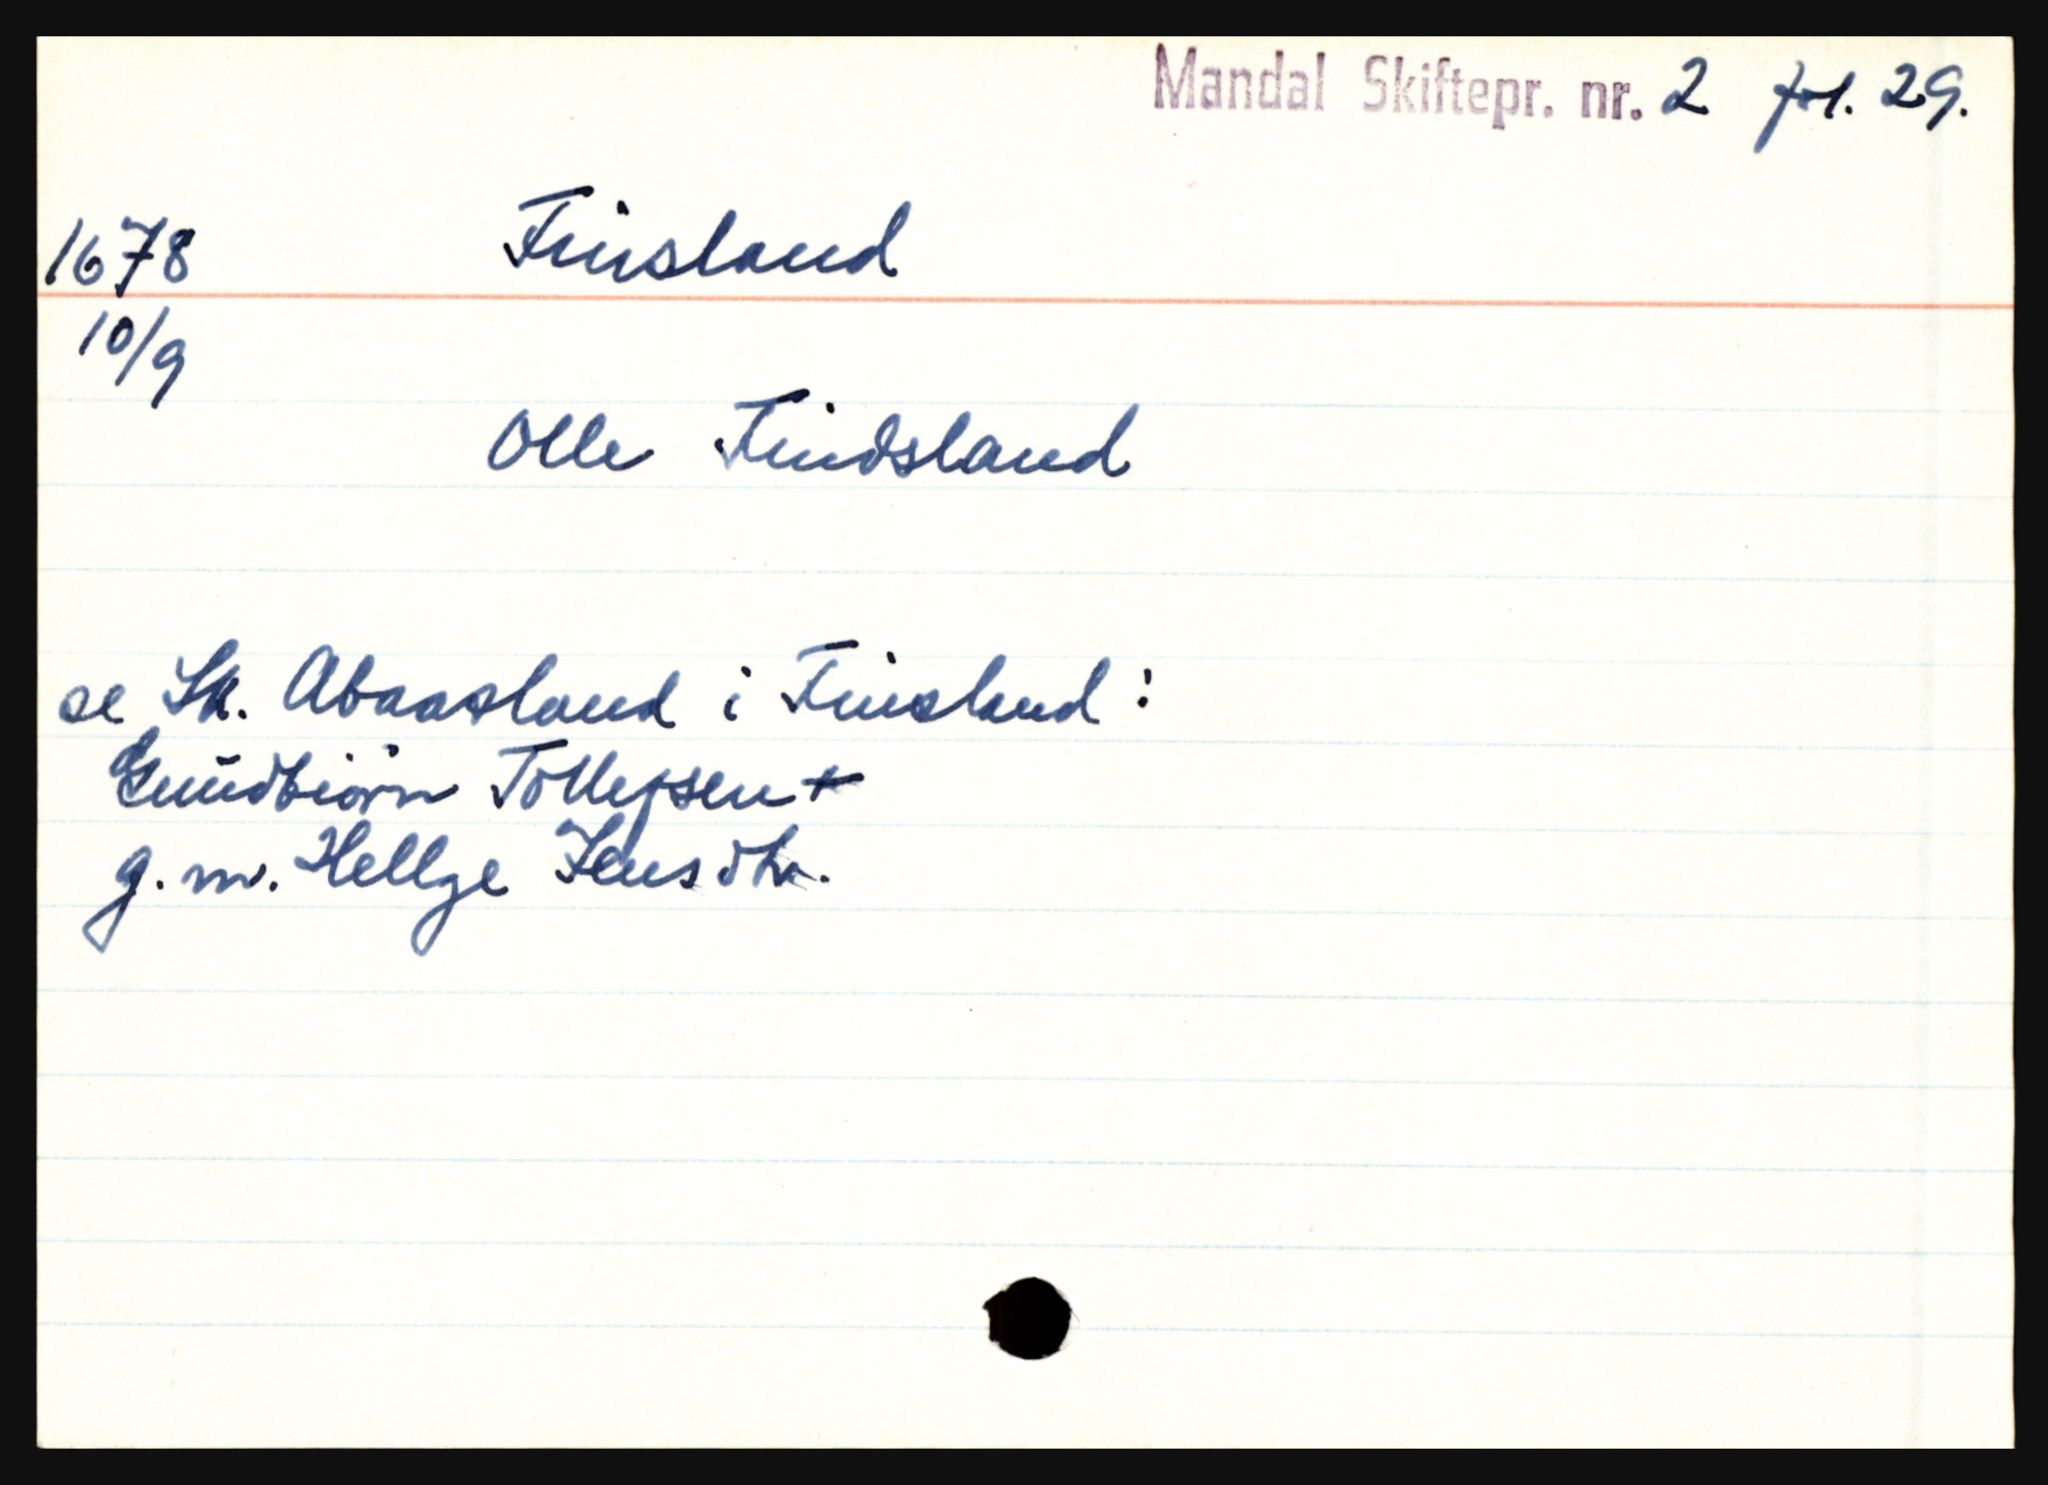 Mandal Skiftepr. nr. 2 fol. 29.
1678 Finsland
10/9
Olle Findsland
se Sk. Abaasland i Finsland:
Gundbiørn Tollefsen +
g. m. Hellge Jensdtr.